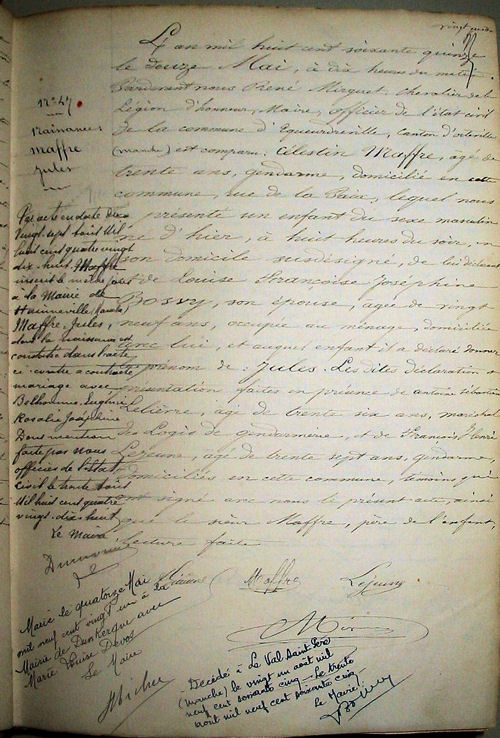 L'an mil huit cent soixante quinze
le douze Mai, à dix heures du matin
Pardevant nous René Mirguet, chevalier de la
Légion d'honneur, Maire, officier de l'état civil
de la commune d'Equeurdreville, Canton d'octeville
(manche) est comparu Célestin Maffre, âgé de
trente ans, gendarme, domicilié en cette
commune, rue de la Paix, lequel nous
a présenté un enfant du sexe masculin
né d'hier, à huit heures du soir en
son domicile susdésigné, de lui déclarant
et de Louise Françoise Joséphine
Bossy, son épouse, agée de vingt
neuf ans, occupée au ménage, domiciliée
avec lui, et auquel enfant il a déclaré donner
le prénom de : Jules. Les dites déclaration et
présentation faites en présence de antoine
Lelièvre, agé de trente six ans, maréchal
des Logis de gendarmerie, et de François
Lejeune, agé de trente sept ans, gendarme
domiciliés en cette commune, témoins qui
ont signé avec nous le présent acte, ainsi
que le sieur Maffre, père de l'enfant,
lecture faite
Maffre Lejeune
N° 47
naissances
maffre
jules
Par acte en date du
vingt sept août Mil
huit cent quatre vingt
dix-huit, Maffre
inscrit le même jour
à la Mairie de
Hainneville (manche)
Maffre Jules,
dont la naissance est
constatée dans l'acte
ci-contre a contracté
mariage avec
Belhomme, Eugénie
Rosalie Joséphine
Dont mention
faite par nous
officier de l'Etat
Civil le trente août
Mil huit cent quatre
vingt-dix huit
Le Maire
Marié le quatorze Mai
mil neuf cent vingt un à la
Mairie de Dunkerque avec
Marie Louise Devos
Le Maire
Décédé à Le Val Saint Père
(manche) le vingt un août mil
neuf cent soixante cinq - Le trente
août mil neuf cent soixante cinq
le Maire